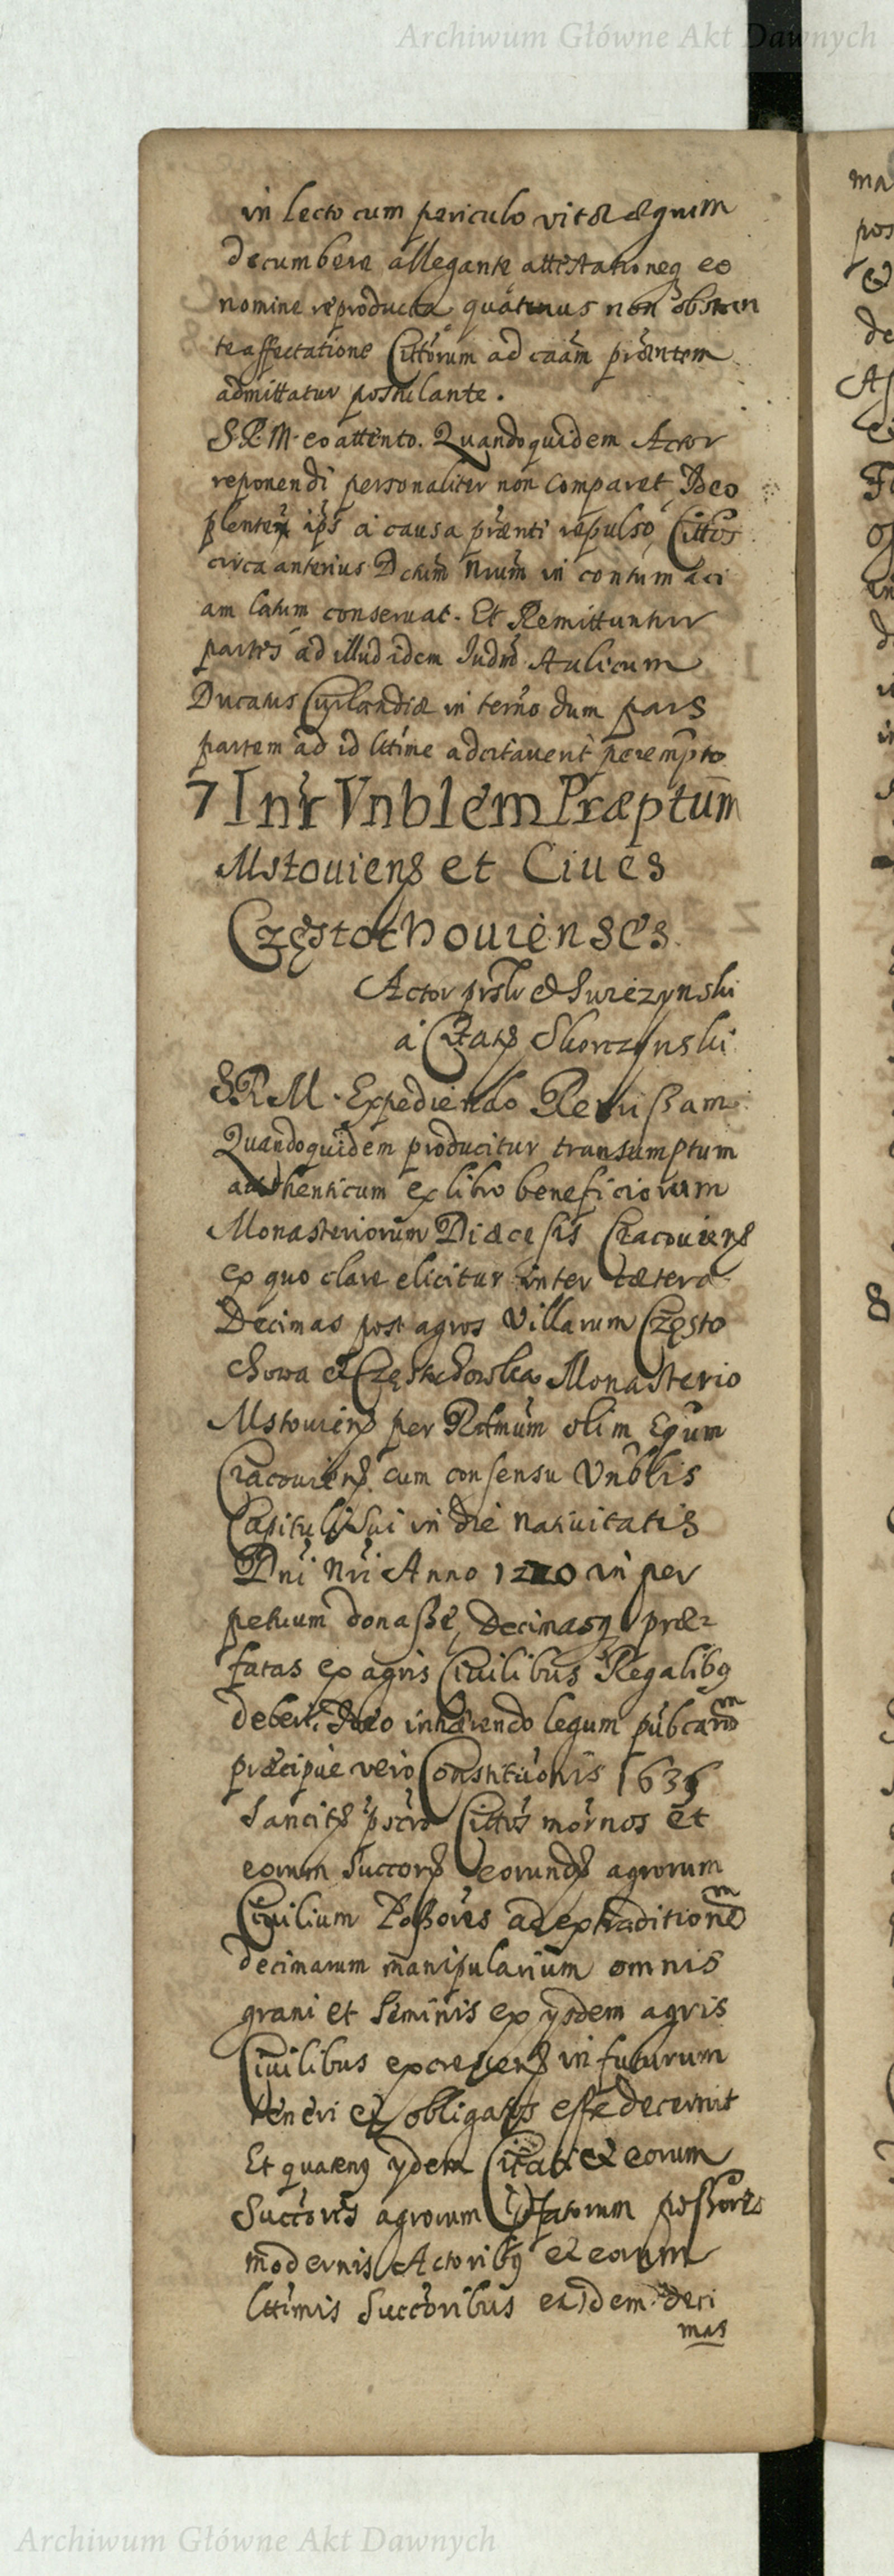 Archiwum Główne Akt Dawnych
in lecto cum periculo vitæ ægrum
decumbere allegante attestationeq eo
nomine reproducta quatenus non obstan
te affectatione Cittorum ad caam prãentem
admittatur postulante.
S.R.M. eo attento. Quandoquidem Actor
reponendi personaliter non comparet, Ideo
plentem ips a causa præenti repulso, Cittos
circa anterius Dctum Nrum in contumaci
am latum conseruat. Et Remittuntur
partes ad illud idem Iudm Aulicum
Ducatus Curlandiæ in termo dum pars
partem ad id lttime adcitauerit perempto
7 Intr Vnblem Præptum
Mstouiens et Ciues
Częstochouienses.
Actor prstr & Surczynski
a Citats Skorczynski
S.R.M. Expediendo Remissam
Quandoquidem producitur transumptum
authenticum ex libro beneficiorum
Monasteriorum Diæcesis Cracouiens
ex quo clare elicitur inter cætera
Decimas post agros Villarum Często
chowa et Częstochowka Monasterio
Mstouiens per Rdmum olim Epum
Cracouiens cum consensu Vnblis
Capituli Sui in die Natiuitatis
Dni Nri Anno 1220 in per
petuum donasse, Decimasq præ=
fatas ex agris Ciuilibus Regalibq
deberi. Ideo inhærendo legum publicarum
præcipue vero Constituonis 1635
Sancits ipsos Cittos mornos et
eorum Succors eorunds agrorum
Ciuilium Possores ad extraditionem
decimarum manipularium omnis
grani et Seminis ex ysdem agris
Ciuilibus excrescens in futurum
teneri et obligatos esse decernit
Et quatenq ydem Citati et eorum
Succores agrorum pfatorum possores
modernis Actoribq et eorum
lttimis Succoribus easdem deci
mas
Archiwum Główne Akt Dawnych